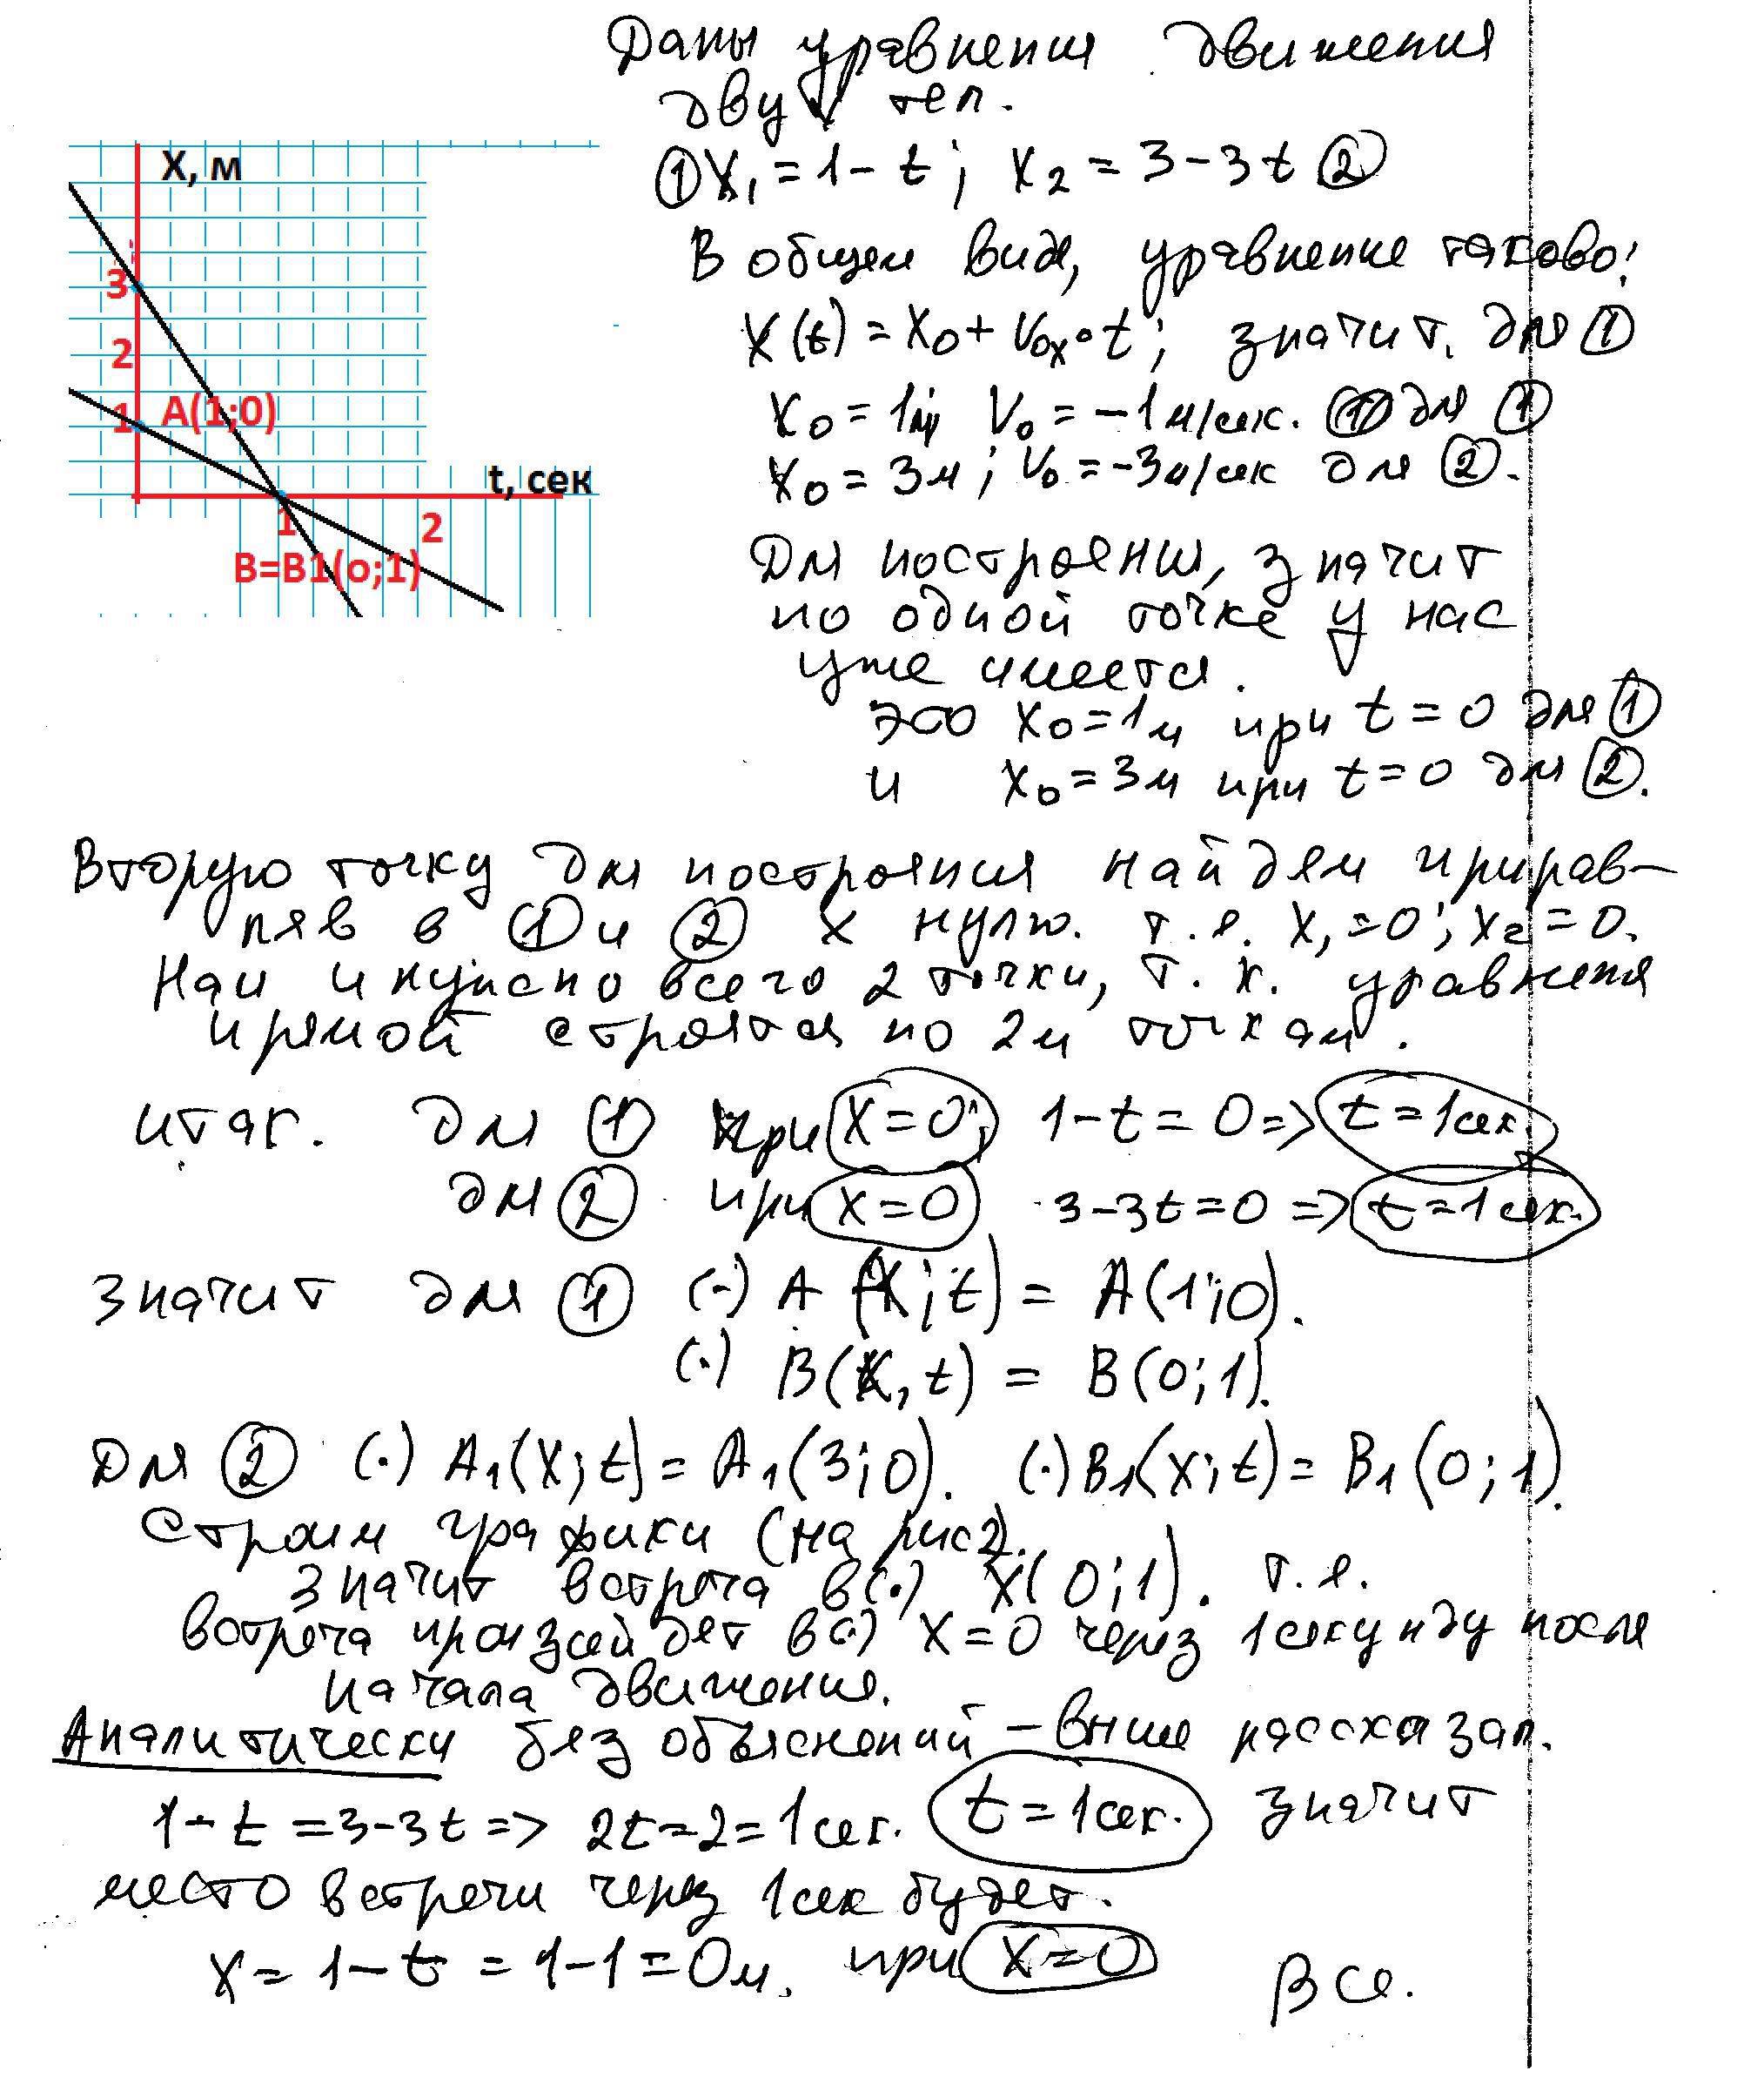 Даны уравнения движения
двух тел.
① X₁ = 1 - t; X₂ = 3 - 3t ②
В общем виде, уравнение таково:
X(t) = X₀ + V₀ₓ·t; значит. для ①
X₀ = 1м V₀ = -1м/сек. ① для ①
X₀ = 3м; V₀ = -3м/сек для ②.
Для построения, значит
по одной точке у нас
уже имеется.
это X₀ = 1м при t = 0 для ①
и X₀ = 3м при t = 0 для ②.
X, м
3
2
1
A(1;0)
t, сек
1
2
B=B1(о;1)
Вторую точку для построения найдем прирав-
няв в ① и ② X нулю. т.е. X₁ = 0; X₂ = 0.
Нам и нужно всего 2 точки, т.к. уравнения
прямой строятся по 2м точкам.
итак. для ① при X = 0; 1 - t = 0 => t = 1сек.
для ② при X = 0 3 - 3t = 0 => t = 1сек.
значит для ① (·) A (X; t) = A(1;0).
(·) B(X, t) = B(0;1).
Для ② (·) A₁(X; t) = A₁(3;0). (·) B₁(X; t) = B₁(0;1).
Строим графики (на рис).
значит встреча в (·) X(0;1). т.е.
встреча произойдет в (·) X = 0 через 1 секунду после
начала движения.
Аналитически без объяснений - выше рассказал.
1 - t = 3 - 3t => 2t = 2 = 1сек. t = 1сек. значит
место встречи через 1 сек будет.
X = 1 - t = 1 - 1 = 0м. при X = 0 Все.